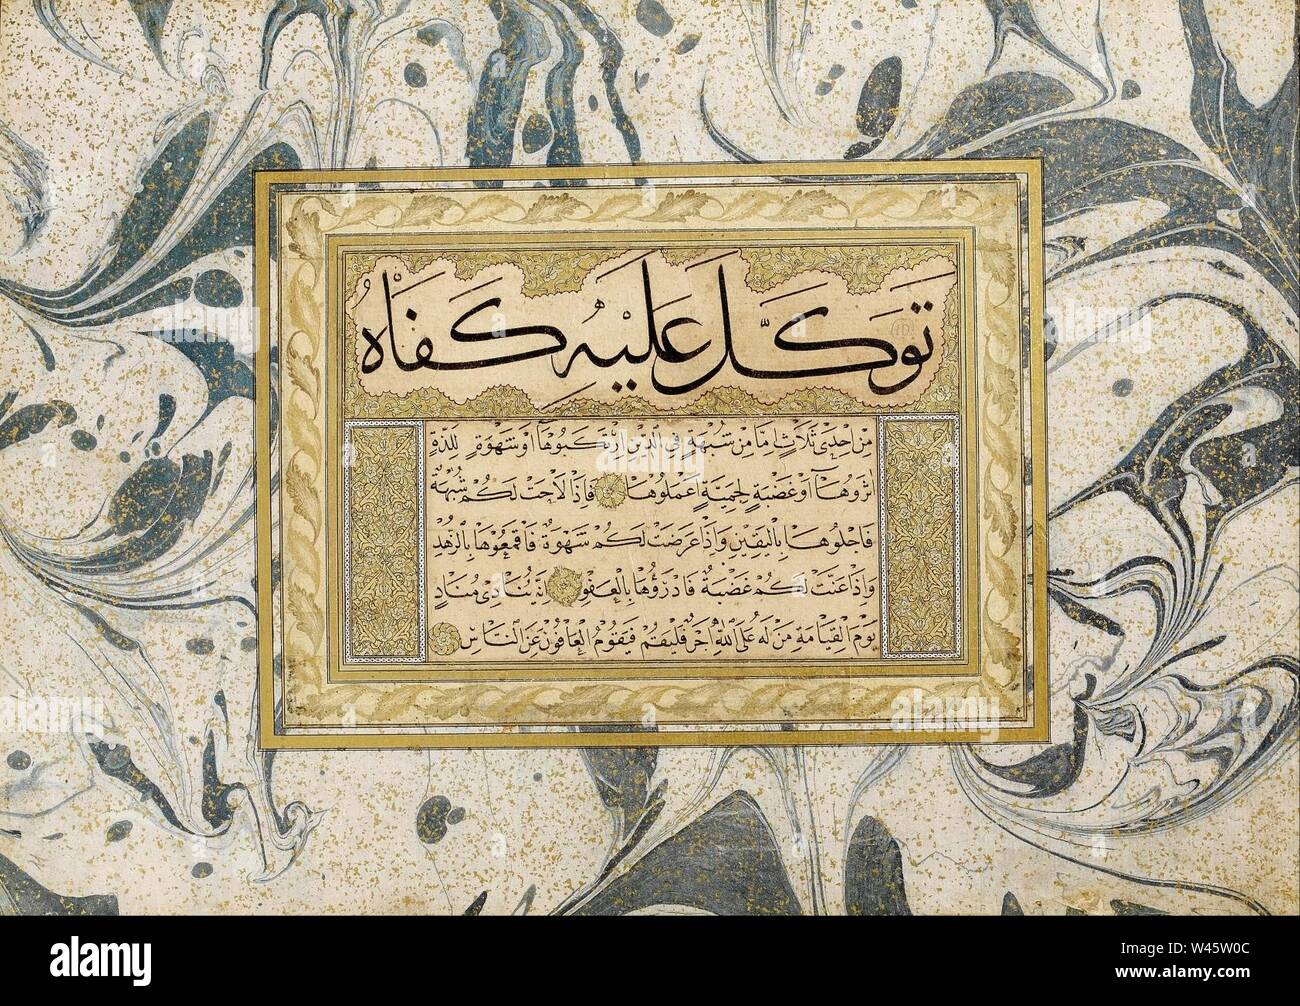 توكل عليه كفاه
من احدى ثلاث اما من شبهة في الدين ارتكبوها او شهوة للذة
اثروها او غضبة لحمية اعملوها فاذا لاحت لكم شبهة
فاجلوها باليقين واذا عرضت لكم شهوة فاقمعوها بالزهد
واذا عنت لكم غضبة فادرؤها بالعفو انه ينادي مناد
يوم القيامة من له على الله اجر فليقم فيقوم العافون عن الناس
alamy
alamy
alamy
alamy
www.alamy.com
Image ID: W45W0C